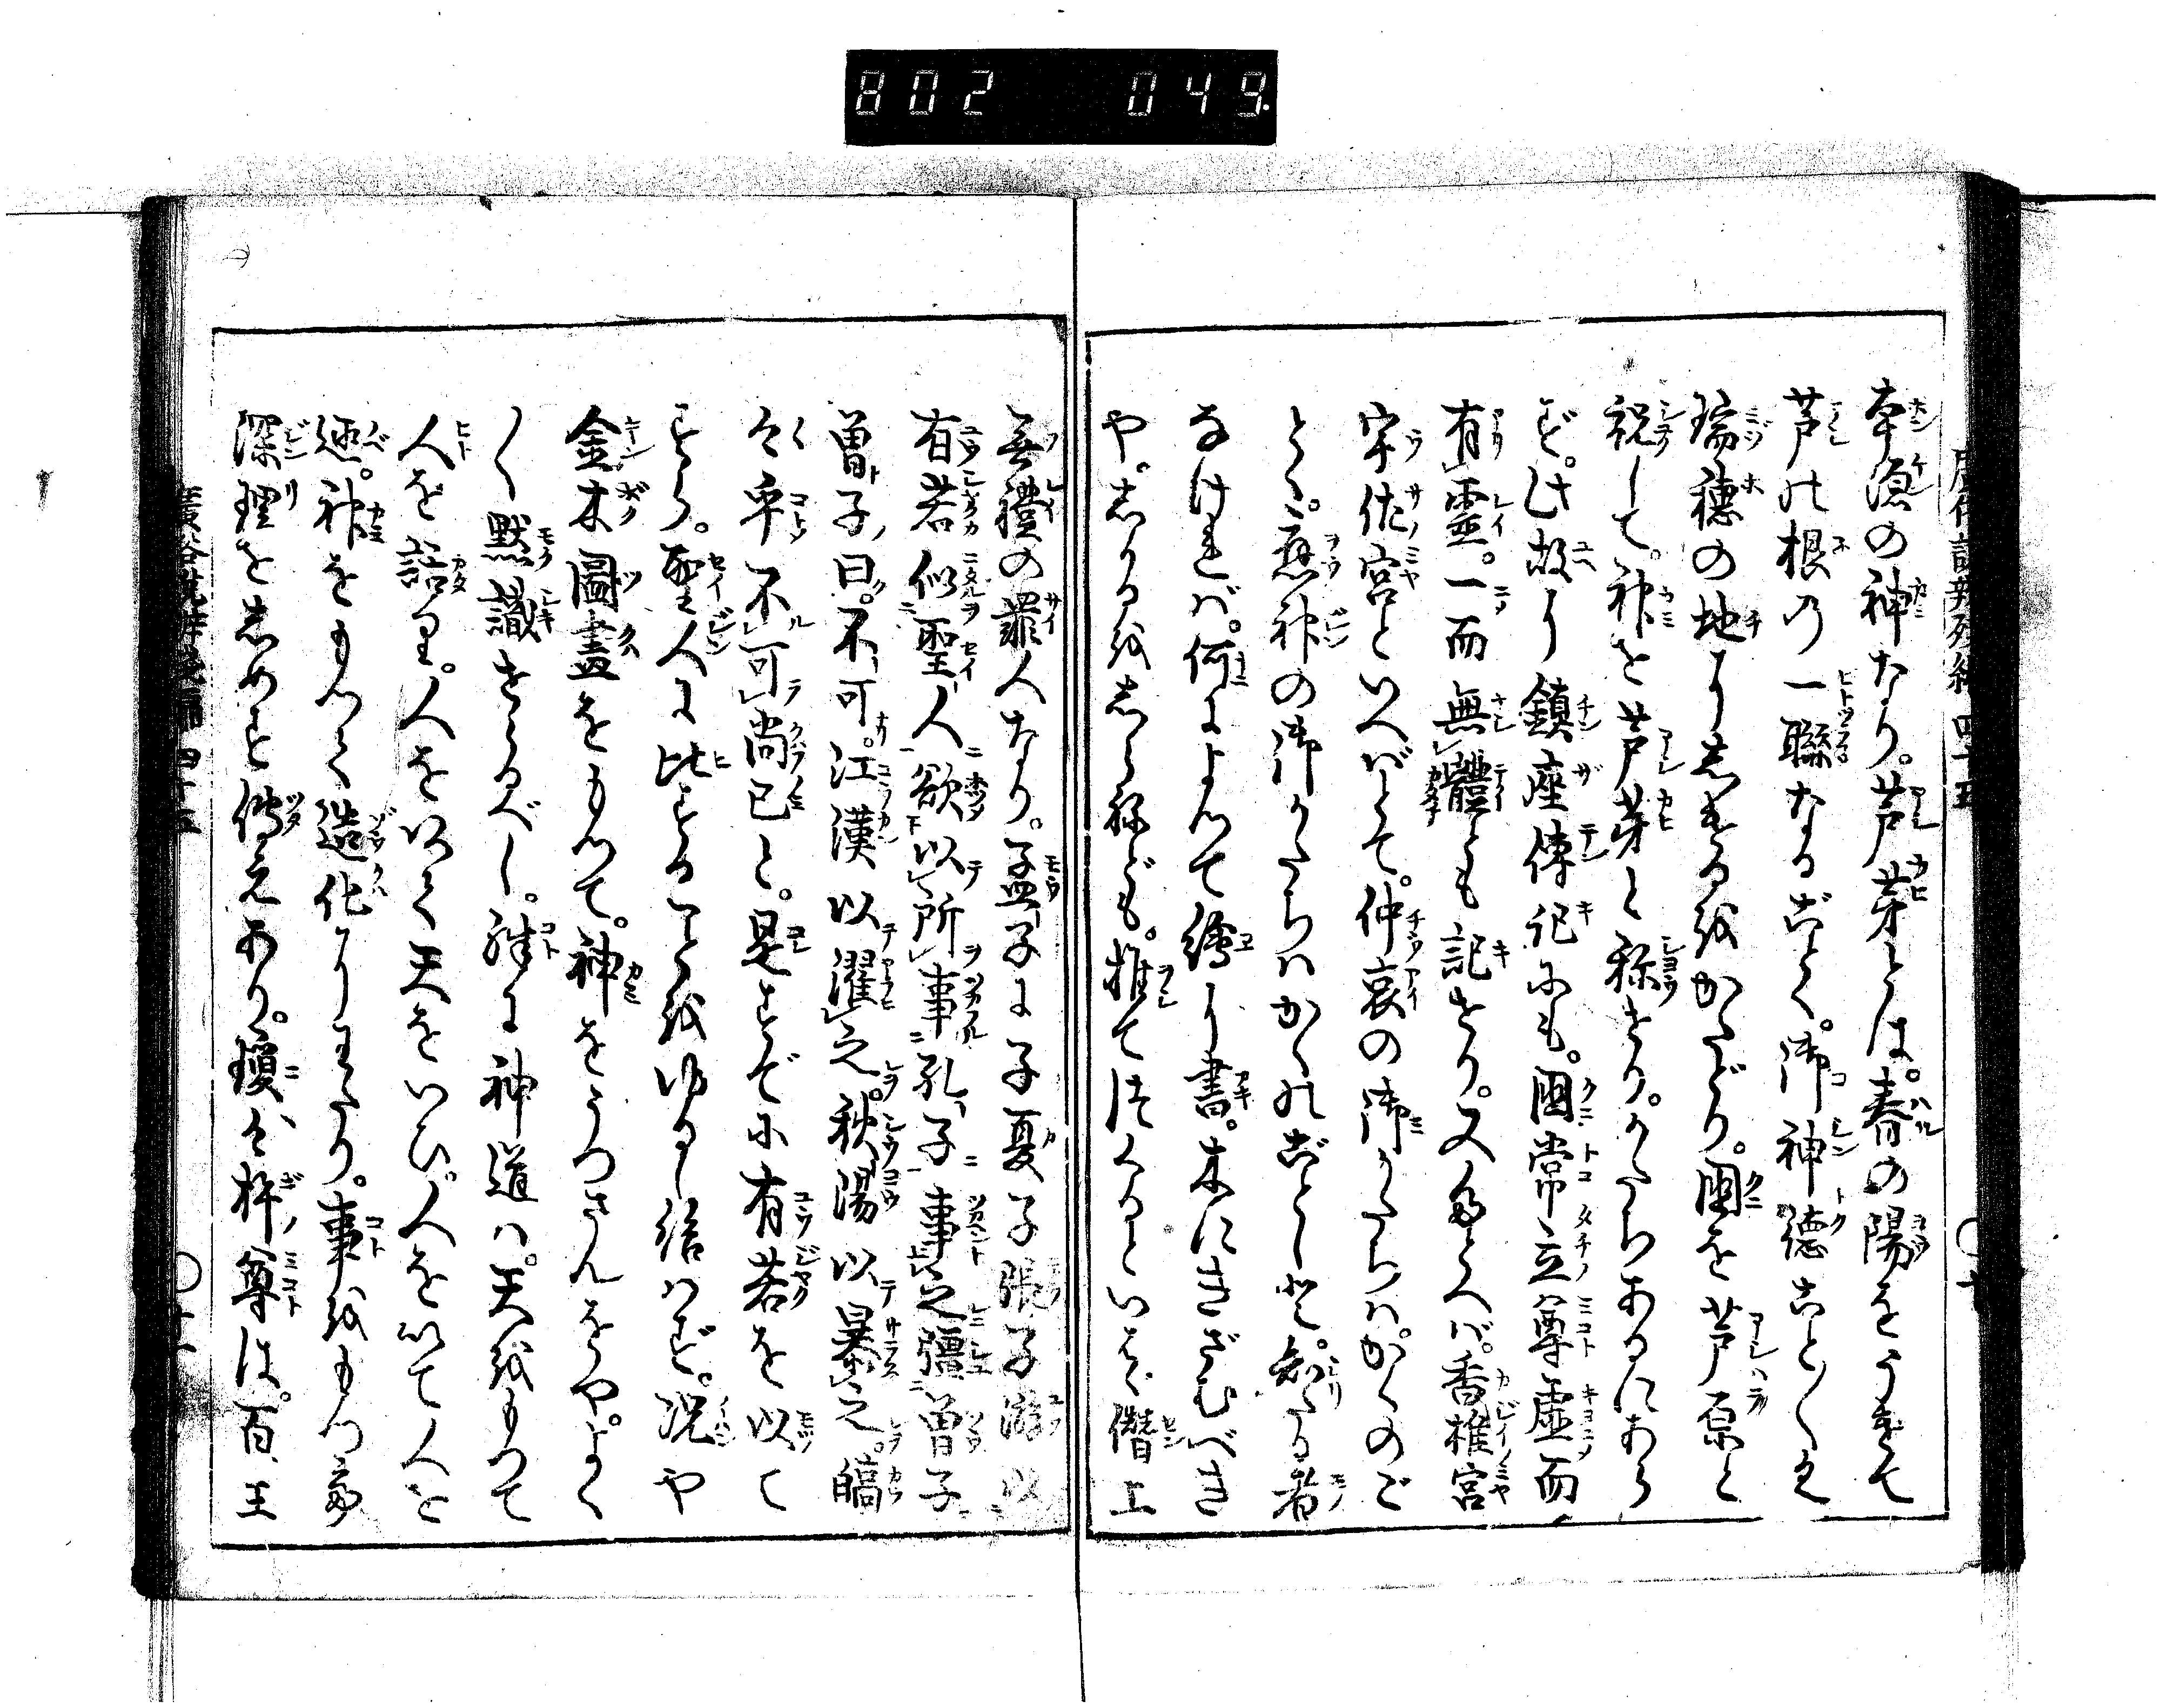 802 049
本源の神なり。芦芽とは。春の陽をうけて
芦の根の一聯なるごとく。御神徳こと〴〵く
瑞穂の地にしけるをかたどり。国を芦原と
祝して。神を芦芽と称せり。かたちあるにあら
ず。此故に鎮座傳記にも。國常立尊虚而
有霊。一而無體とも記せり。又たとへば。香椎宮
宇佐宮といへばとて。仲哀の御かたちはかくのご
とく。應神の御かたちはかくのごとしと。知たる者
なければ。何によつて繪に書。木にきざむべき
や。しかるをしらねども。推てつくるといはゞ。僭上
無禮の罪人なり。孟子に子夏子張子游以
有若似聖人欲以所事孔子事之彊曽子
曽子曰。不可。江漢以濯之。秋陽以暴之。皜
々乎不可尚已と。是すでに有若を以て
すら。聖人に比することをゆるし給はず。况や
金木圖畫をもつて。神をうつさんをや。よく
〳〵黙識せらるべし。殊に神道は。天をもつて
人を語り。人を以て天をいひ。人を以て人を
述。神をもつて造化にわたり。事をもつて
深理をしめす傳えあり。瓊々杵尊は。百王
廣益俗説辨後編 四十五